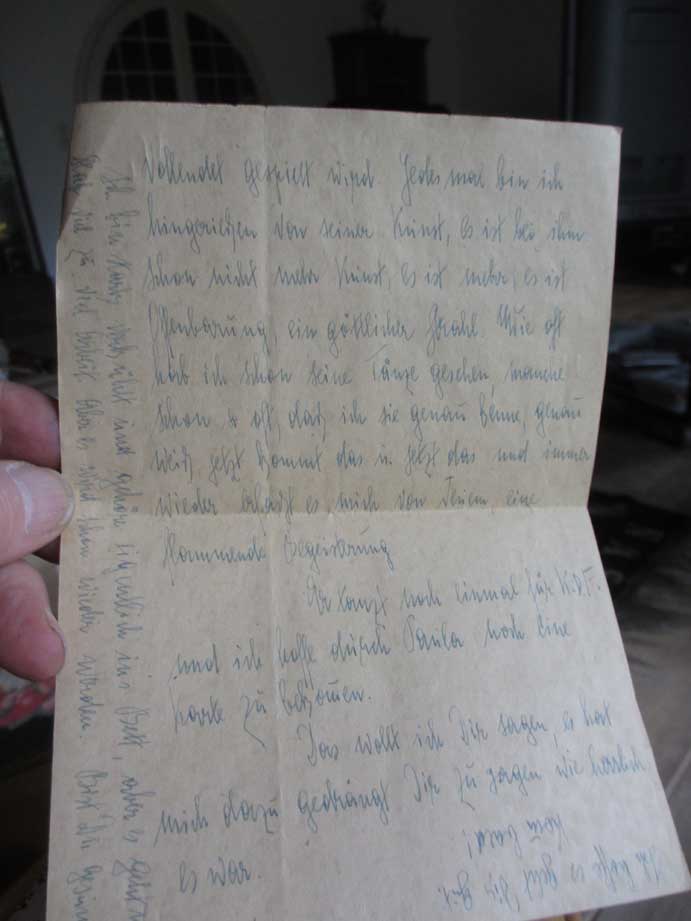 vollendet gespielt wird. Jedes mal bin ich
hingerissen von seiner Kunst, es ist bei ihm
schon nicht mehr Kunst, es ist mehr, es ist
Offenbarung, ein göttlicher Strahl. Wie oft
hab ich schon seine Tänze gesehen, manche
schon so oft, daß ich sie genau kenne, genau
weiß, jetzt kommt das u. jetzt das und immer
wieder erfaßt es mich von Neuem, eine
flammende Begeisterung
Er tanzt noch einmal für K.d.F.
und ich hoffe durch Paula noch eine
Karte zu bekommen.
Das wollt ich Dir sagen, es hat
mich dazu gedrängt Dir zu sagen wie herrlich
es war.
Ich hoffe es geht Dir gut.
komm bald!
Ich bin und gehöre eigentlich ins Bett, aber es geht
viel zu viel Arbeit aber es wird schon wieder werden. Bist Du